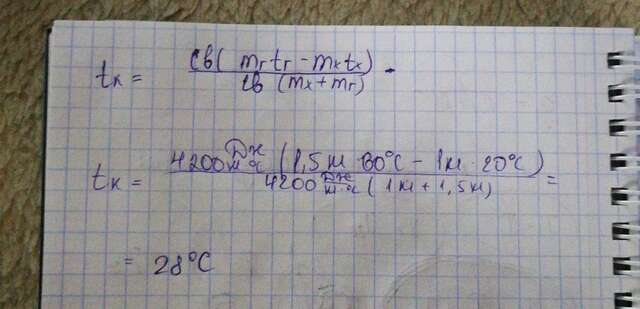 tк = cв( mг tг - mх tх) / cв (mх + mг) -
tк = 4200 Дж/кг·°С (1,5 кг · 60°С - 1кг · 20°С) / 4200 Дж/кг·°С (1кг + 1,5кг) =
= 28°С